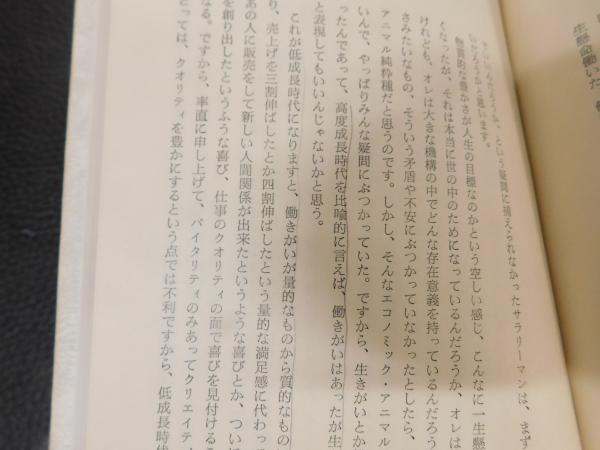 生懸命働いた、
きにいんだろうか、という疑問に捕えられなかったサラリーマンは、まず
いだろうと思います。
物質的な豊かさが人生の目標なのかという空しい感じ、こんなに一生懸
くなったが、それは本当に世の中のためになっているんだろうか、オレは
けれども、オレは大きな機構の中でどんな存在意義を持っているんだろう
さみたいなもの、そういう矛盾や不安にぶつかっていなかったとしたら、
アニマル純粋種だと思うのです。しかし、そんなエコノミック・アニマル
いんで、やっぱりみんな疑問にぶつかっていた。ですから、生きがいとか
ったんであって、高度成長時代を比喩的に言えば、働きがいはあったが生
と表現してもいいんじゃないかと思う。
これが低成長時代になりますと、働きがいが量的なものから質的なもの
り、売上げを三割伸ばしたとか四割伸ばしたという量的な満足感に代わっ
あの人に販売をして新しい人間関係が出来たというような喜びとか、つい
を創り出したというふうな喜び、仕事のクオリティの面で喜びを見付ける
なる。ですから、率直に申し上げて、バイタリティのみあってクリエイティ
とっては、クオリティを豊かにするという点では不利ですから、低成長時